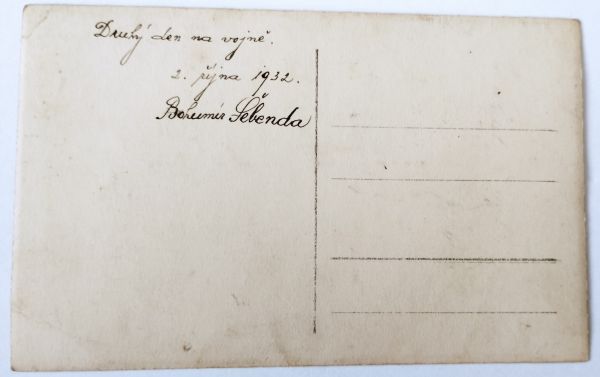 Druhý den na vojně.
2. října 1932.
Bohumír Šebenda